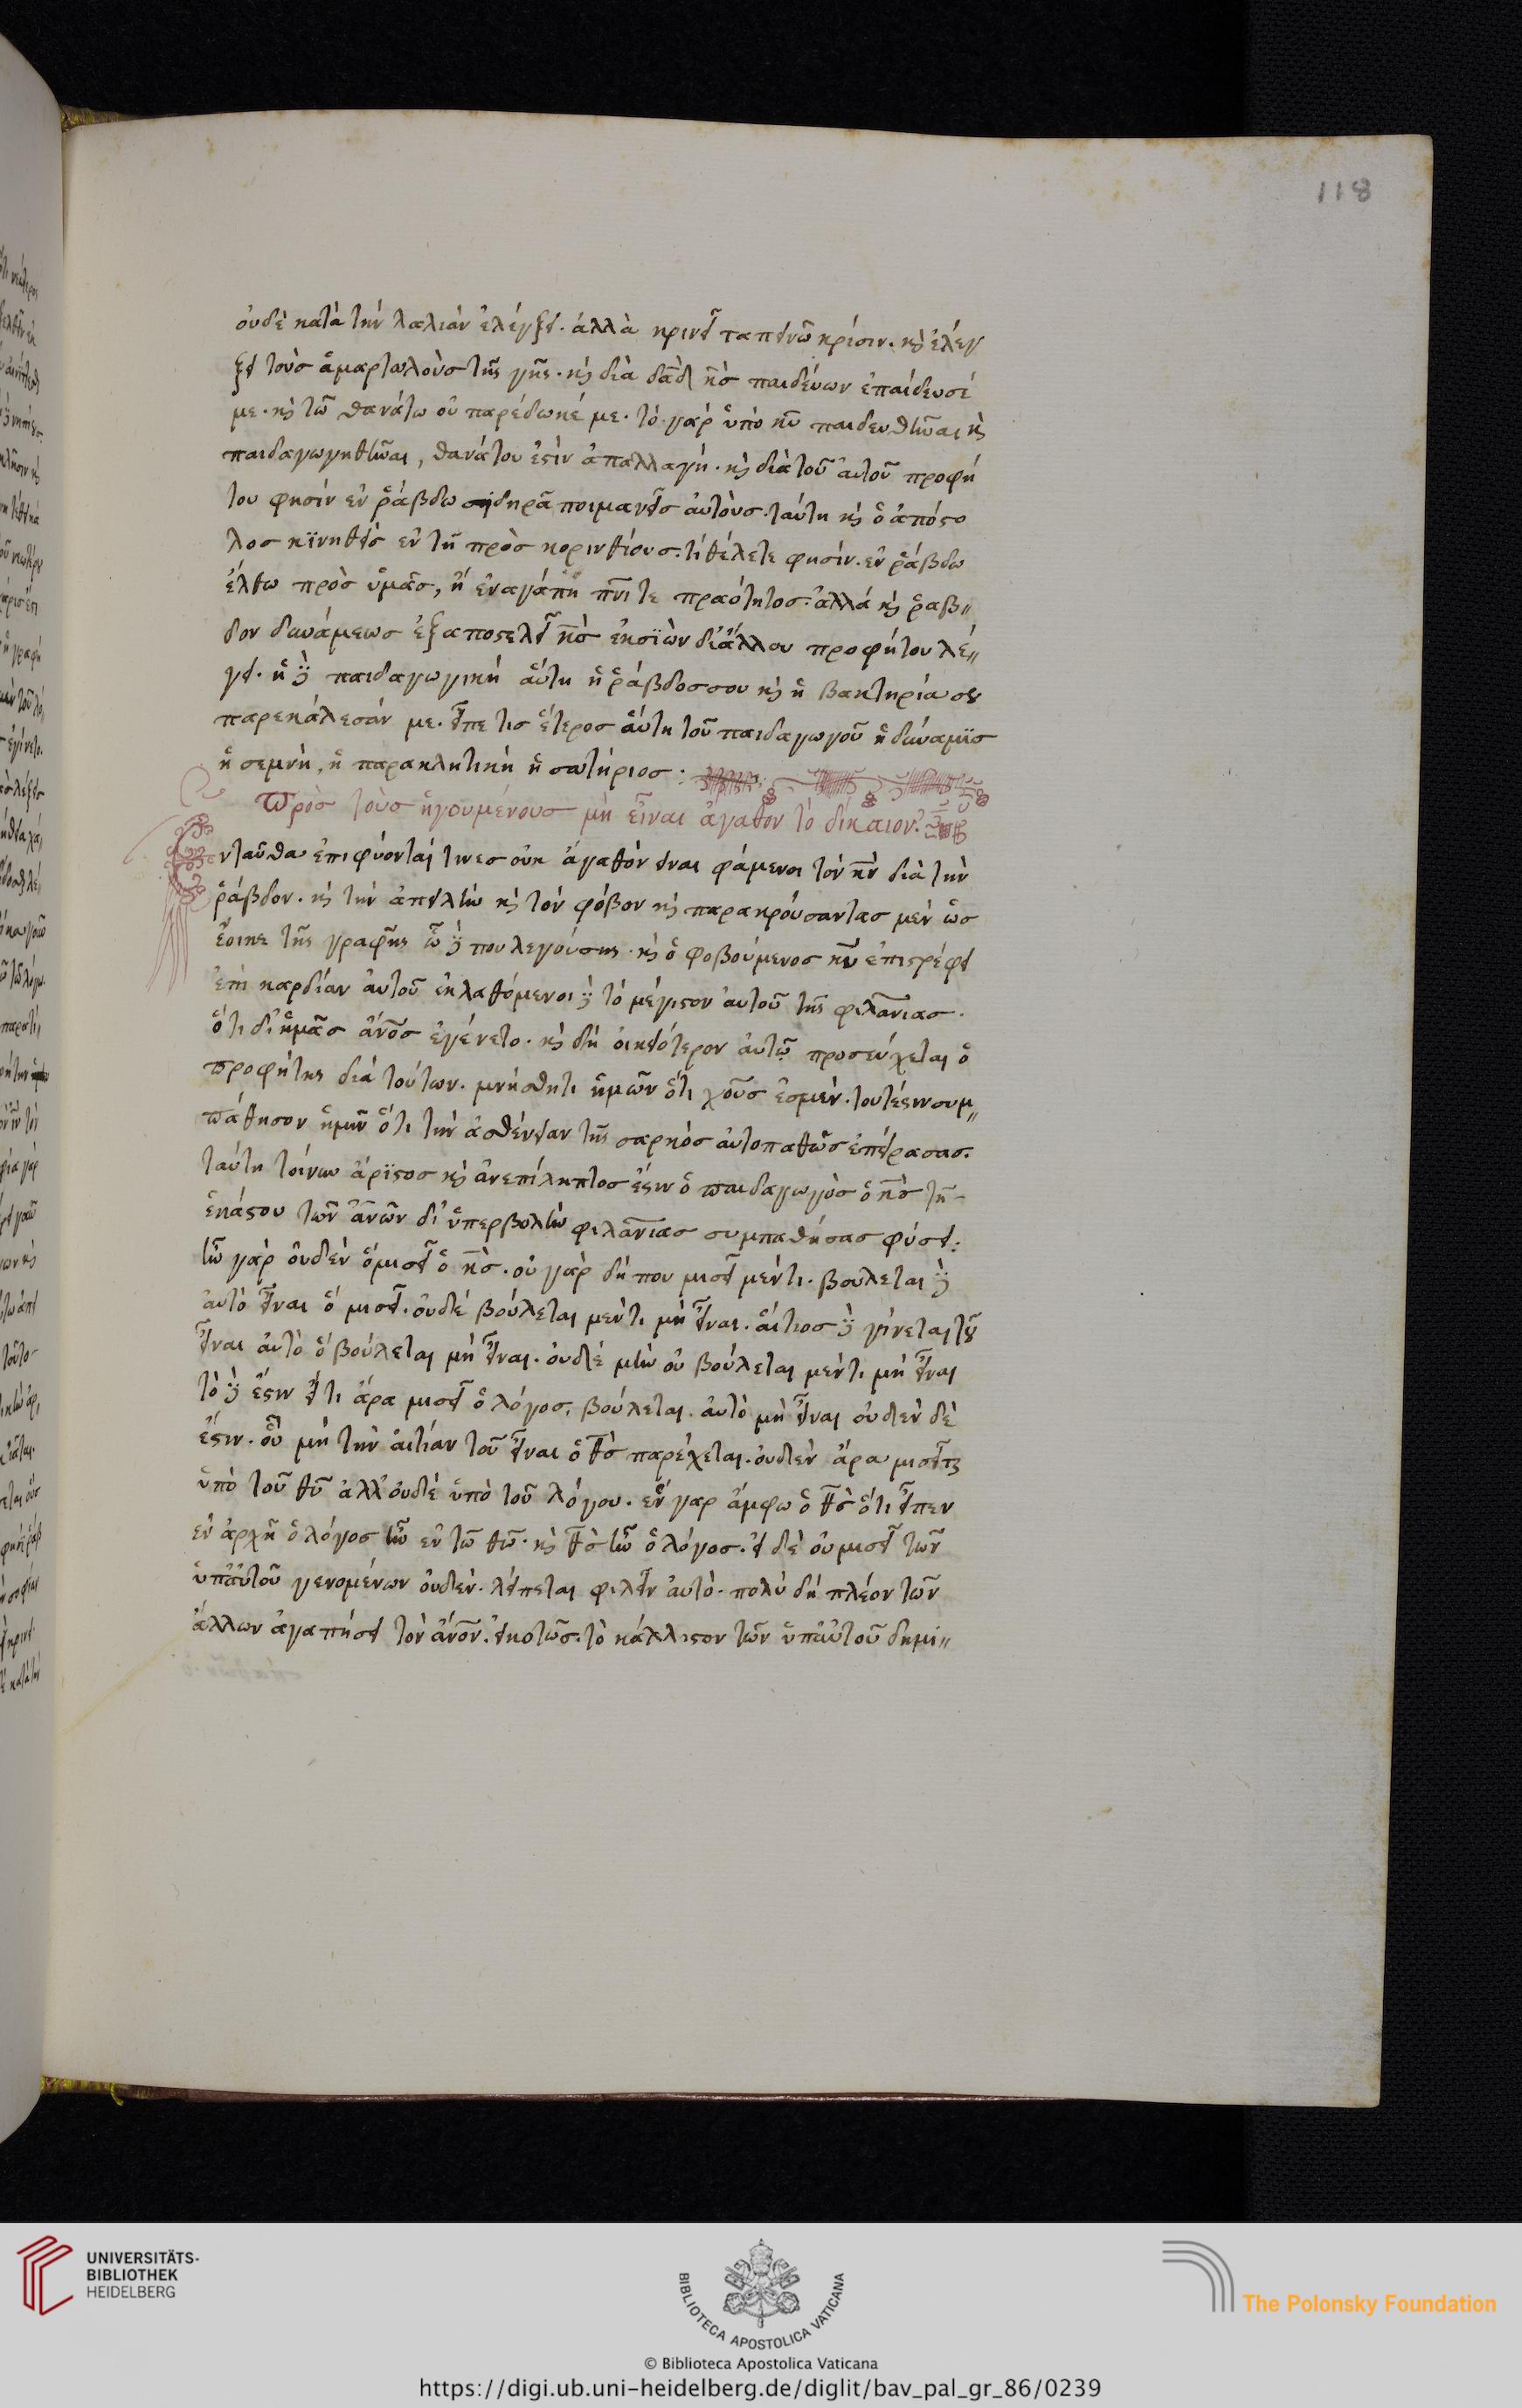 118
οὐδὲ κατὰ τὴν λαλιὰν ἐλέγξει. ἀλλὰ κρινεῖ ταπεινῶ κρίσιν. κ̀ ἐλέγ
ξει τοὺσ ἁμαρτωλοὺσ τῆς γῆς. κ̀ διὰ δᾱδ κ̄σ παιδέυων ἐπαίδευσέ
με. κ̀ τῶ θανάτω οὐ παρέδωκέ με. τὸ γὰρ ὑπὸ κ̄υ παιδευθῆναι κ̀
παιδαγωγηθῆναι, θανάτου ἐστὶν ἀπαλλαγή. κ̀ διὰ τοῦ ἀυτοῦ προφή
του φησὶν ἐν ῥάβδω σιδηρᾶ ποιμανεῖσ ἀυτὸυσ. ταύτη κ̀ ὁ ἀπόστο
λοσ κϊνηθεὶσ ἐν τῆ πρὸσ κορινθίουσ. τί θέλετε φησίν. ἐν ῥάβδω
ἔλθω πρὸσ ὑμᾶσ, ἢ ἐν αγάπη πν̄ι τε πραότητοσ. ἀλλὰ κ̀ ῥαβ〃
δον δυνάμεωσ ἐξαποστελεῖ κ̄σ ἐκ σϊὼν δι ἄλλου προφήτου λέ〃
γει. ἡ δὲ παιδαγωγικὴ ἅυτη ἡ ῥάβδοσ σου κ̀ ἡ βακτηρία σου
παρεκάλεσάν με. εἶπε τισ ἕτεροσ ἅυτη τοῦ παιδαγωγοῦ ἡ δύναμϊσ
ἡ σεμνὴ, ἡ παρακλητικὴ ἡ σωτήριοσ:
Πρὸσ τοὺσ ἡγουμένουσ μὴ εἶναι ἀγαθὸν τὸ δίκαιον.
Ενταῦθα ἐπιφύονταί τινεσ οὐκ ἀγαθὸν εἶναι φάμενοι τὸν κ̄ν διὰ τὴν
ῥάβδον. κ̀ τὴν ἀπειλὴν κ̀ τὸν φόβον κ̀ παρακρόυσαντασ μὲν ὡσ
ἔοικε τῆς γραφῆς ὧδέ που λεγόυσης. κ̀ ὁ φοβούμενοσ κ̄ν ἐπιστρέφει
ἐπὶ καρδίαν ἀυτοῦ ἐκλαθόμενοι δὲ τὸ μέγιστον ἀυτοῦ τῆς φιλᾱνιασ.
ὅτι δι ἡμᾶσ ἄν̄οσ ἐγένετο. κ̀ δὴ ὀικειότερον ἀυτῶ προσεύχεται ὁ
προφήτης διὰ τούτων. μνήσθητι ἡμῶν ὅτι χοῦσ ἐσμὲν. τουτέστιν συμ〃
πάθησον ἡμῖν ὅτι τὴν ἀσθένειαν τῆς σαρκὸσ ἀυτοπαθῶσ ἐπείρασασ.
ταύτη τοίνυν ἄρϊστοσ κ̀ ἀνεπίληπτοσ ἔστιν ὁ παιδαγωγὸσ ὁ κ̄σ τῆ
ἑκάστου τῶν ἀν̄ῶν δι ὑπερβολὴν φιλᾱνίασ συμπαθήσασ φύσει:
ἦν γὰρ οὐδὲν ὅ μισεῖ ὁ κ̄σ. οὐ γὰρ δή που μισεῖ μέν τι. βούλεται δὲ
ἀυτὸ εἶναι ὅ μισεῖ. οὐδὲ βούλεται μέν τι μὴ εἶναι. ἄιτιοσ δὲ γίνεται τοῦ
εἶναι ἀυτὸ ὅ βούλεται μὴ εἶναι. οὐδὲ μὴν οὐ βούλεται μέν τι μὴ εἶναι
τὸ δὲ ἔστιν εἴ τι ἄρα μισεῖ ὁ λόγοσ, βούλεται ἀυτὸ μὴ εἶναι οὐδὲν δὲ
ἔστιν. οὗ μὴ τὴν ἀιτίαν τοῦ εἶναι ὁ θ̄σ παρέχεται. οὐδὲν ἄρα μισεῖται
ὑπὸ τοῦ θ̄υ ἀλλ᾽ οὐδὲ ὑπὸ τοῦ λόγου. ἓν γαρ ἄμφω ὁ θ̄σ ὅτι εἶπεν
ἐν ἀρχῆ ὁ λόγοσ ἦν ἐν τῶ θ̄ῶ. κ̀ θ̄σ ἦν ὁ λόγοσ. εἰ δὲ οὐ μισεῖ τῶν
ὑπ᾽ ἀυτοῦ γενομένων οὐδὲν. λείπεται φιλεῖν ἀυτὸ. πολὺ δὴ πλέον τῶν
ἄλλων ἀγαπήσει τὸν ἄν̄ον. εἰκοτῶσ. τὸ κάλλιστον τῶν ὑπ᾽ ἀυτοῦ δημι〃
UNIVERSITÄTS-
BIBLIOTHEK
HEIDELBERG
BIBLIOTECA APOSTOLICA VATICANA
The Polonsky Foundation
© Biblioteca Apostolica Vaticana
https://digi.ub.uni-heidelberg.de/diglit/bav_pal_gr_86/0239